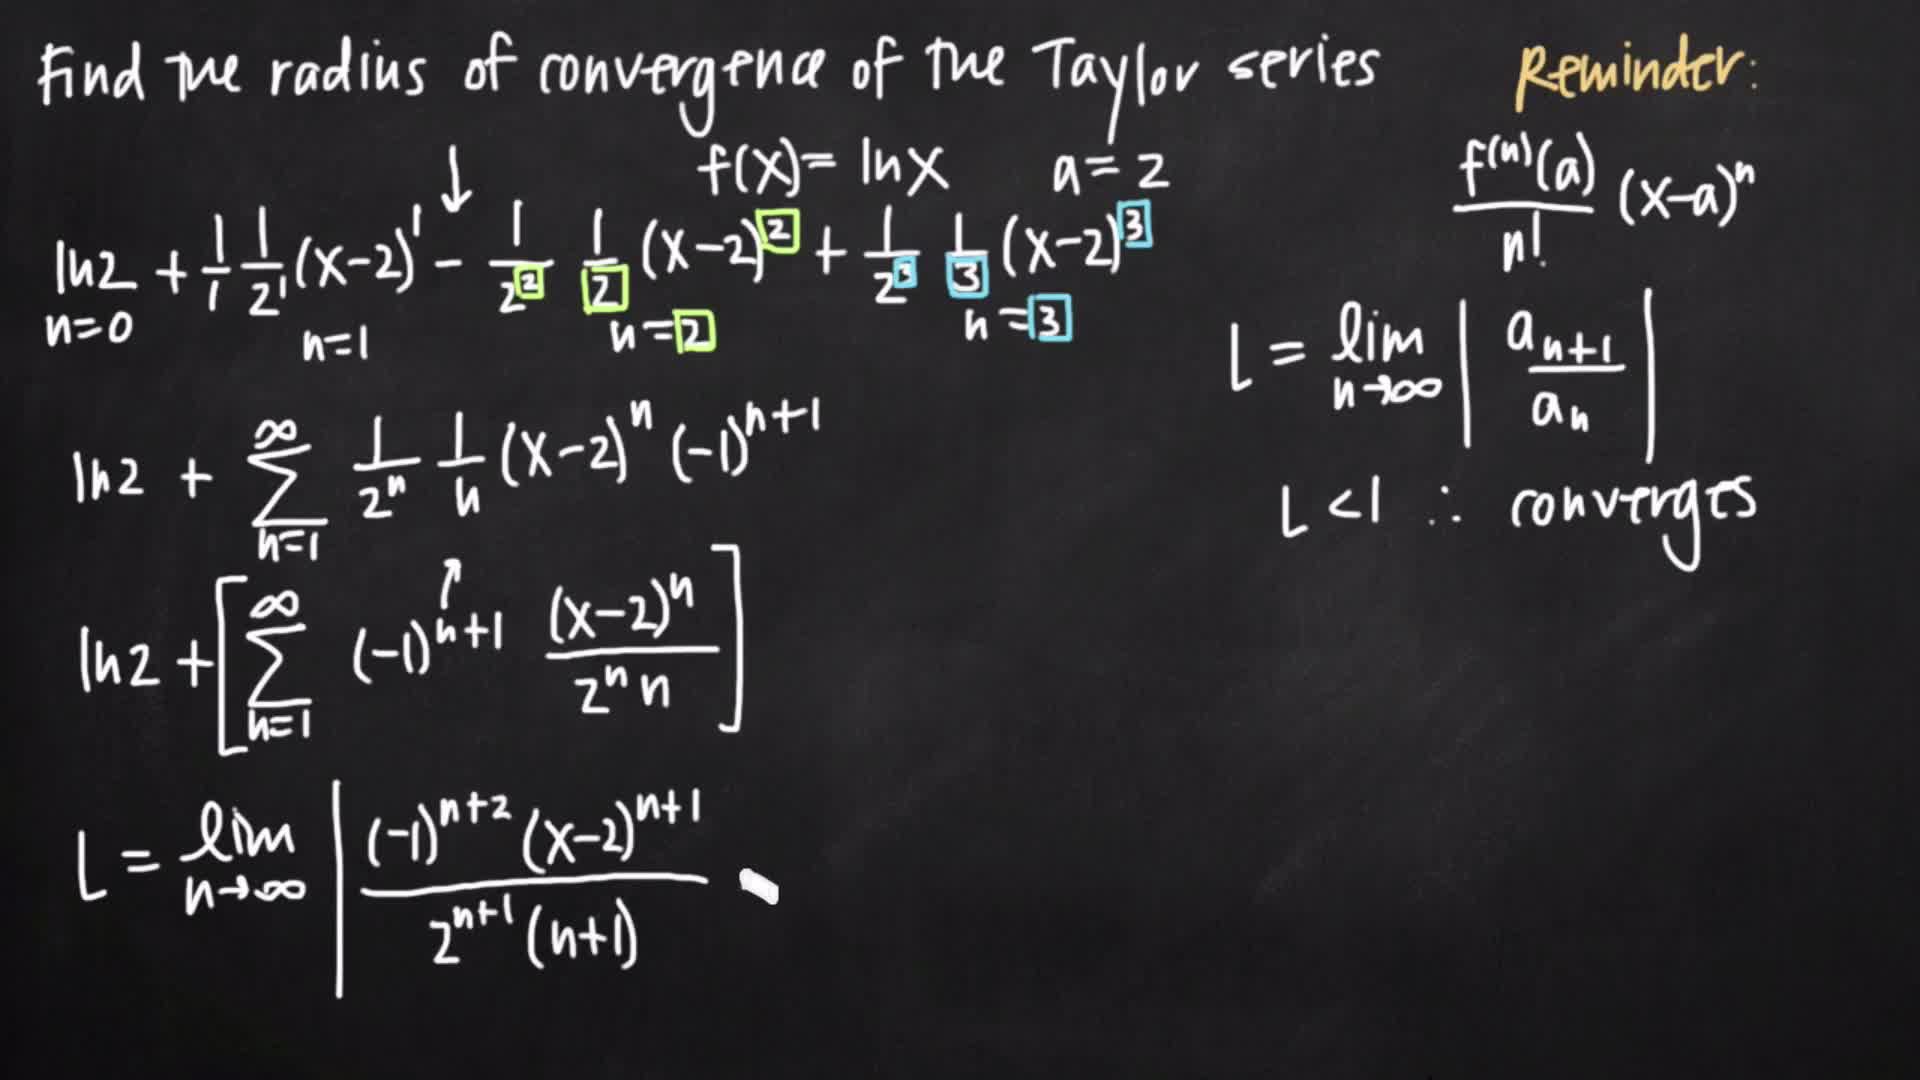 Find the radius of convergence of the Taylor series
f(x) = ln x a = 2
ln 2 + 1/1 1/2^1 (x-2)^1 - 1/2^2 1/2 (x-2)^2 + 1/2^3 1/3 (x-2)^3
n=0 n=1 n=2 n=3
ln 2 + ∑_{n=1}^{∞} 1/2^n 1/n (x-2)^n (-1)^{n+1}
ln 2 + [∑_{n=1}^{∞} (-1)^{n+1} (x-2)^n / 2^n n]
L = lim_{n→∞} | (-1)^{n+2} (x-2)^{n+1} / 2^{n+1} (n+1)
Reminder:
f^{(n)}(a)/n! (x-a)^n
L = lim_{n→∞} | a_{n+1} / a_n |
L < 1 ∴ converges